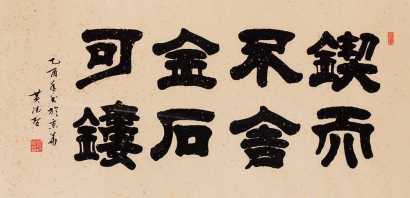 鍥而
不舍
金石
可鏤
乙酉年书於京華